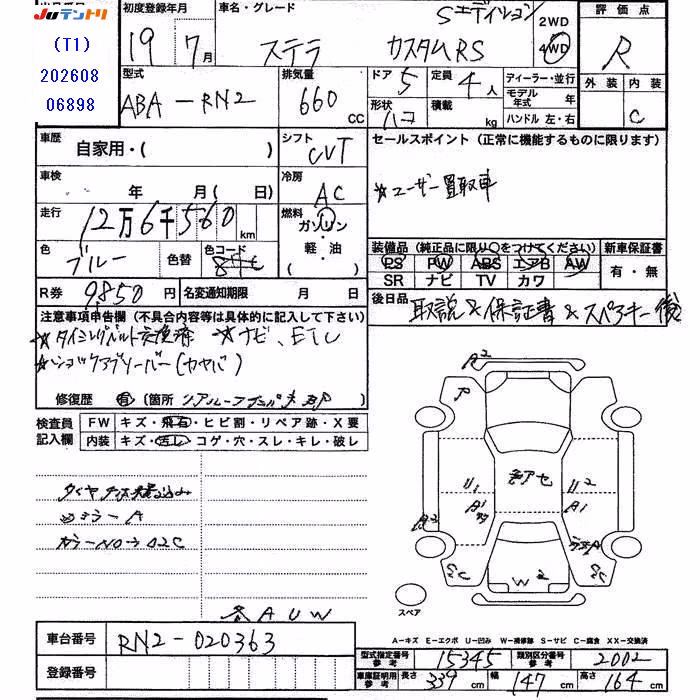 出品番号
JUテントリ
(T1)
202608
06898
初度登録年月
19年 7月
車名・グレード
Sエディション
ステラ カスタムRS
2WD
4WD
評価点
R
外装 内装
C
型式
ABA-RN2
排気量
660 CC
ドア 5
定員 4人
形状 ハコ
積載 kg
ディーラー・並行
モデル年式 年
ハンドル 左・右
車歴
自家用・( )
シフト
CVT
車検
年 月( 日)
冷房
AC
走行
12万6千560km
燃料
ガソリン・軽・油
( )
色
ブルー
色替
色コード
R券 9850円
名変通知期限 月 日
セールスポイント (正常に機能するものに限ります)
☆ユーザー買取車
装備品 (純正品に限り○をつけてください)
PS PW ABS エアB AW
SR ナビ TV カワ
新車保証書
有・無
後日品
取説&保証書&スペアキー 後
注意事項申告欄 (不具合内容等は具体的に記入して下さい)
☆タイミングベルト交換済 ☆ナビ、ETC
☆ショックアブソーバー(カヤバ)
修復歴 有 (箇所
検査員記入欄
FW キズ・飛石・ヒビ割・リペア跡・X要
内装 キズ・汚し・コゲ・穴・スレ・キレ・破レ
ミラーA
カラーNo→02C
各AUW
A2
P
U1
A1
U2
A1
A2
C2C
W2
スペア
A-キズ E-エクボ U-凹み W-補修跡 S-サビ C-腐食 XX-交換済
車台番号
RN2-020363
登録番号
型式指定番号 参考 15345
類別区分番号 参考 2002
車庫証明用 参考 長さ 339cm 幅 147cm 高さ 164cm